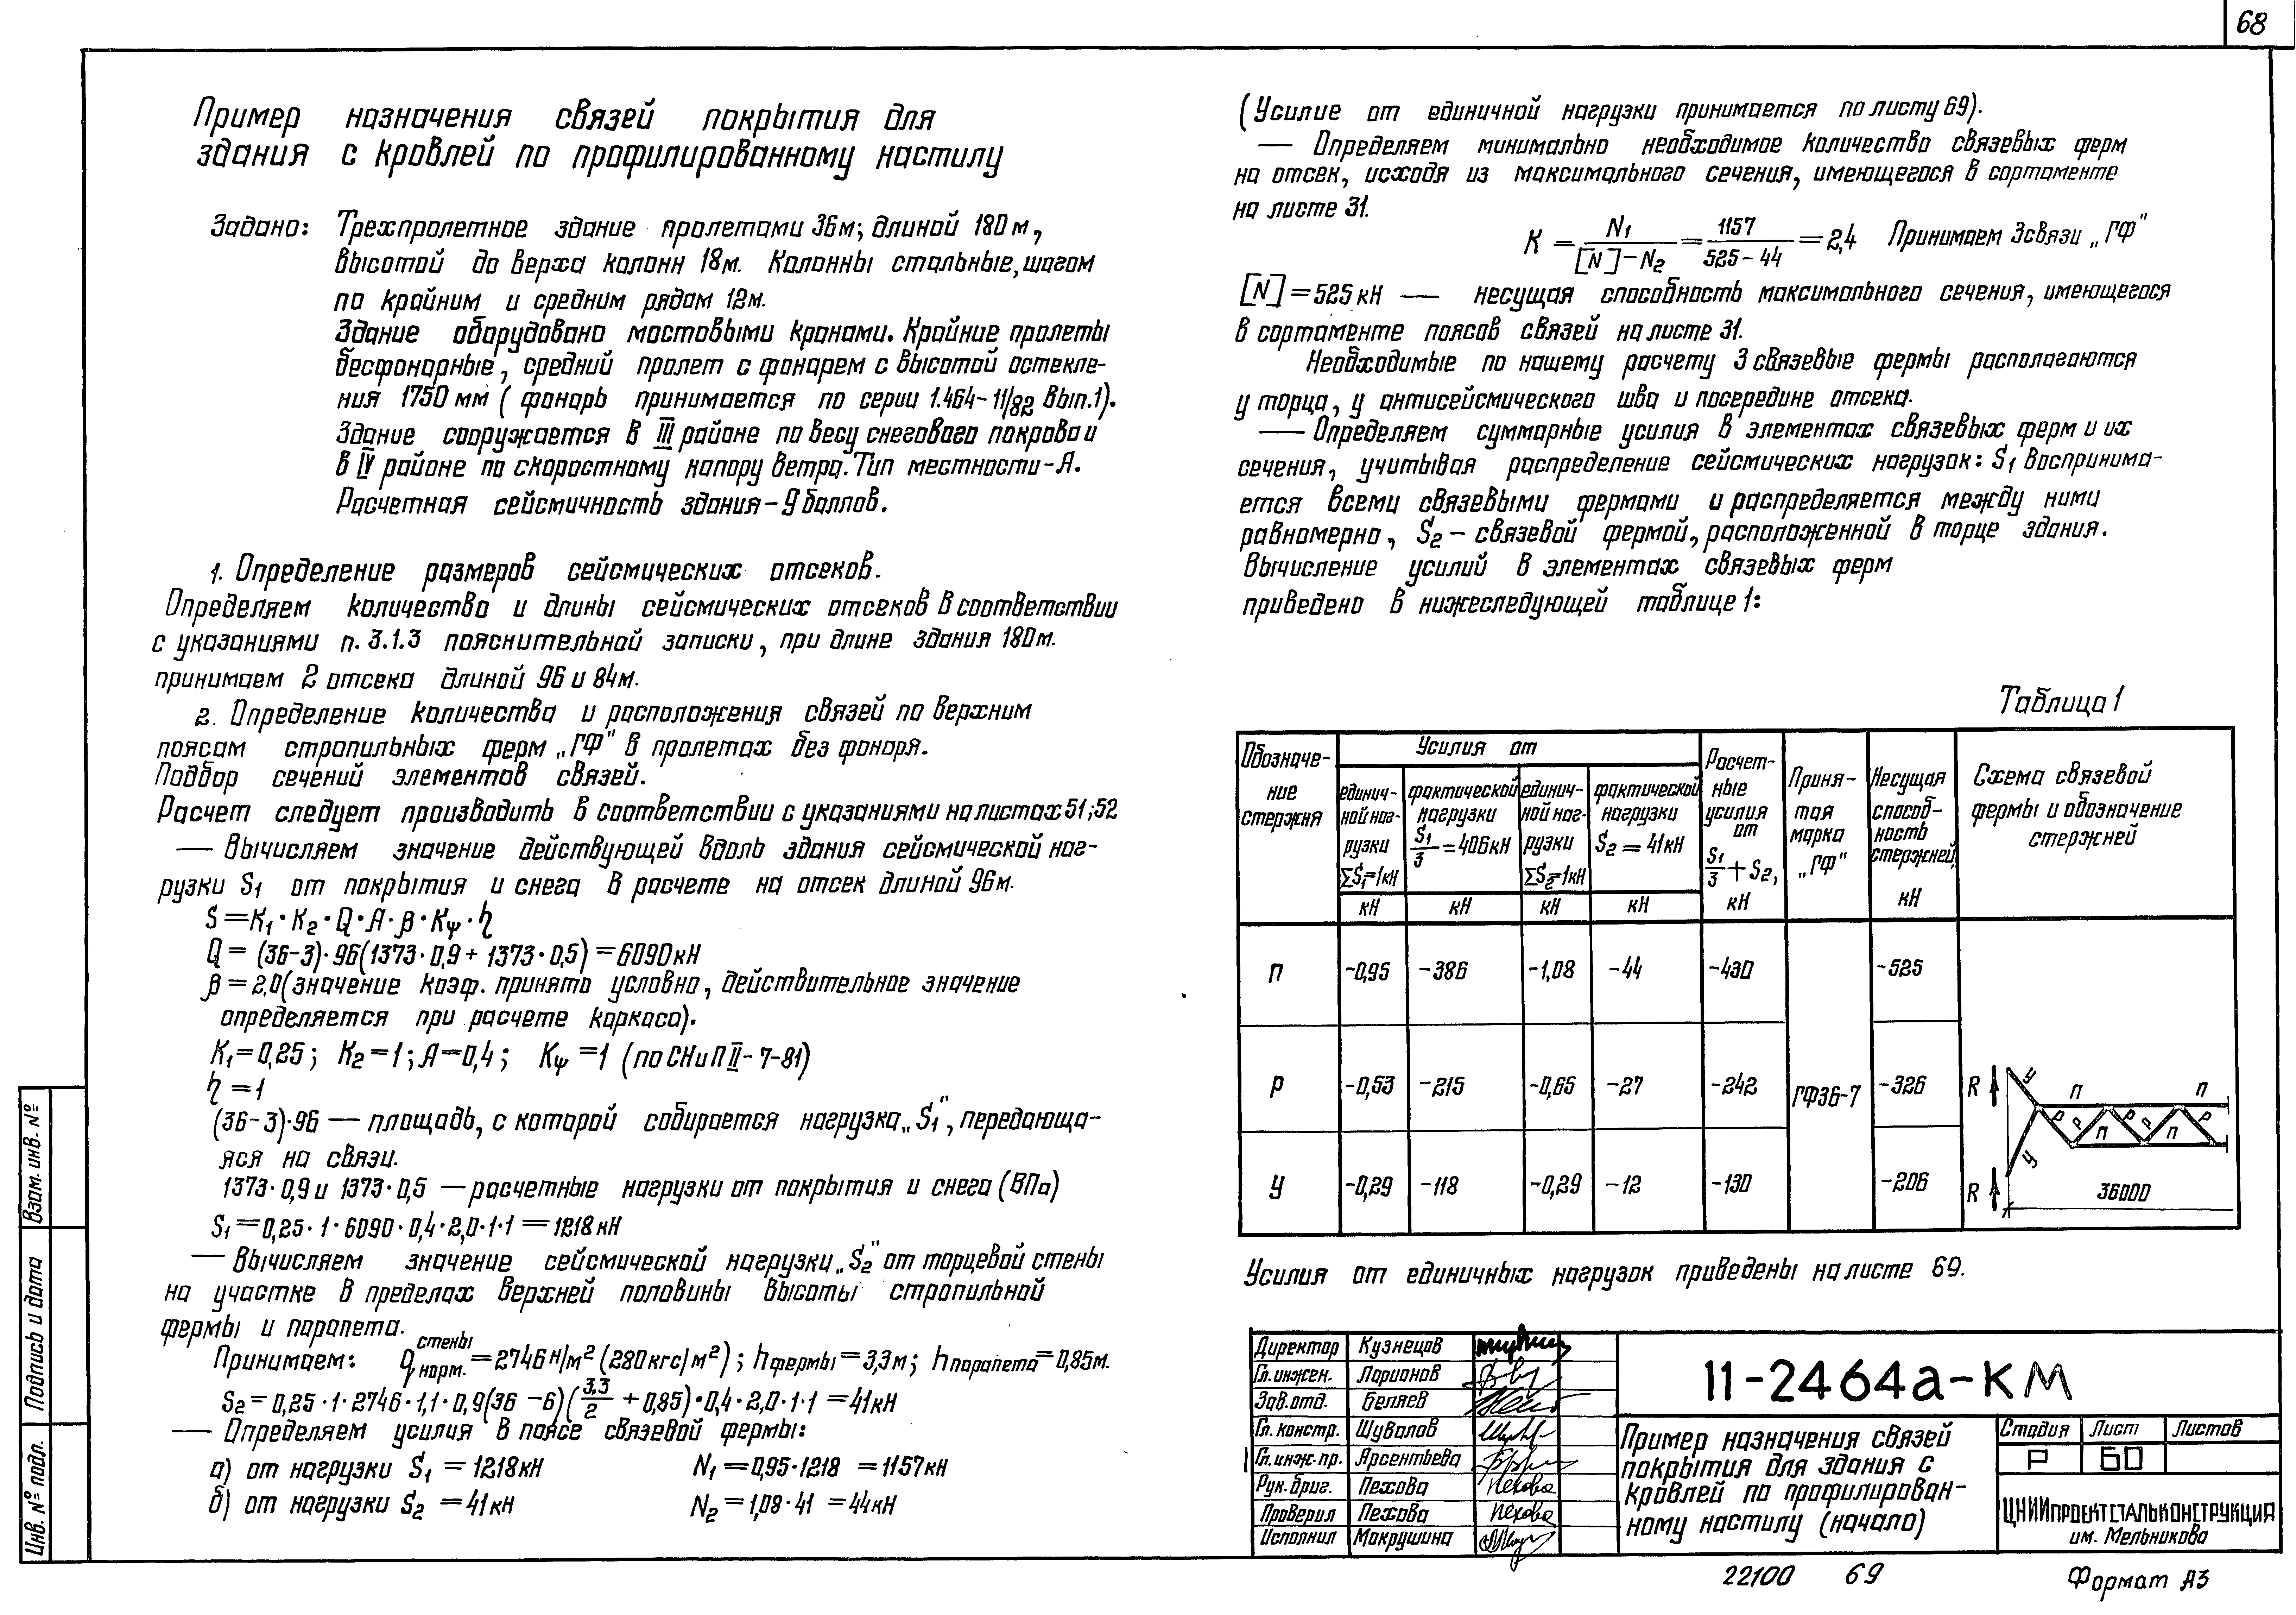 68
Пример назначения связей покрытия для
здания с кровлей по профилированному настилу
Задано: Трехпролетное здание пролетами 36м; длиной 180м,
высотой до верха колонн 18м. Колонны стальные, шагом
по крайним и средним рядам 12м.
Здание оборудовано мостовыми кранами. Крайние пролеты
бесфонарные, средний пролет с фонарем с высотой остекле-
ния 1750 мм (фонарь принимается по серии 1.464-11/82 Вып.1).
Здание сооружается в III районе по весу снегового покрова и
в IV районе по скоростному напору ветра. Тип местности-А.
Расчетная сейсмичность здания-9 баллов.
1. Определение размеров сейсмических отсеков.
Определяем количество и длины сейсмических отсеков в соответствии
с указаниями п. 3.1.3 пояснительной записки, при длине здания 180м.
принимаем 2 отсека длиной 96 и 84м.
2. Определение количества и расположения связей по верхним
поясам стропильных ферм „ГФ" в пролетах без фонаря.
Подбор сечений элементов связей.
Расчет следует производить в соответствии с указаниями на листах 51; 52
— Вычисляем значение действующей вдоль здания сейсмической наг-
рузки S1 от покрытия и снега в расчете на отсек длиной 96м.
S = K1 · K2 · Q · A · β · Kψ · η
Q = (36-3)·96(1373·0,9 + 1373·0,5) = 6090кН
β = 2,0 (значение коэф. принято условно, действительное значение
определяется при расчете каркаса).
K1 = 0,25; K2 = 1; A = 0,4; Kψ = 1 (по СНиП II-7-81)
η = 1
(36-3)·96 — площадь, с которой собирается нагрузка „S1", передающа-
яся на связи.
1373·0,9 и 1373·0,5 — расчетные нагрузки от покрытия и снега (ВПа)
S1 = 0,25·1·6090·0,4·2,0·1·1 = 1218кН
— Вычисляем значение сейсмической нагрузки „S2" от торцевой стены
на участке в пределах верхней половины высоты стропильной
фермы и парапета.
Принимаем: q стены норм. = 2746н/м² (280кгс/м²); hфермы = 3,3м; hпарапета = 0,85м.
S2 = 0,25·1·2746·1,1·0,9(36-6)(3,3/2 + 0,85)·0,4·2,0·1·1 = 41кН
— Определяем усилия в поясе связевой фермы:
а) от нагрузки S1 = 1218кН N1 = 0,95·1218 = 1157кН
б) от нагрузки S2 = 41кН N2 = 1,08·41 = 44кН
(Усилие от единичной нагрузки принимается по листу 69).
— Определяем минимально необходимое количество связевых ферм
на отсек, исходя из максимального сечения, имеющегося в сортаменте
на листе 31.
K = N1/([N]-N2) = 1157/(525-44) = 2,4 Принимаем 3связи „ГФ"
[N] = 525кН — несущая способность максимального сечения, имеющегося
в сортаменте поясов связей на листе 31.
Необходимые по нашему расчету 3 связевые фермы располагаются
у торца, у антисейсмического шва и посередине отсека.
— Определяем суммарные усилия в элементах связевых ферм и их
сечения, учитывая распределение сейсмических нагрузок: S1 воспринима-
ется всеми связевыми фермами и распределяется между ними
равномерно, S2 - связевой фермой, расположенной в торце здания.
Вычисление усилий в элементах связевых ферм
приведено в нижеследующей таблице 1:
Таблица 1
Обозначе-
ние
стержня
Усилия от
единич-
ной наг-
рузки
ΣS1=1кН
фактической
нагрузки
S1/3 = 406кН
единич-
ной наг-
рузки
ΣS2=1кН
фактической
нагрузки
S2 = 41кН
Расчет-
ные
усилия
от
S1/3 + S2,
кН
Приня-
тая
марка
„ГФ"
Несущая
способ-
ность
стержней,
кН
Схема связевой
фермы и обозначение
стержней
кН кН кН кН
П -0,95 -386 -1,08 -44 -430 -525
Р -0,53 -215 -0,65 -27 -242 ГФ36-7 -326
У -0,29 -118 -0,29 -12 -130 -206
R У П П
Р Р Р Р Р
П П
У
R 36000
Усилия от единичных нагрузок приведены на листе 69.
Директор Кузнецов
Гл.инжен. Ларионов
Зав.отд. Беляев
Гл. констр. Шувалов
Гл. инж. пр. Арсентьева
Рук. бриг. Пехова
Проверил Пехова
Исполнил Мокрушина
11-2464а-КМ
Пример назначения связей
покрытия для здания с
кровлей по профилирован-
ному настилу (начало)
Стадия Лист Листов
Р 60
ЦНИИПРОЕКТСТАЛЬКОНСТРУКЦИЯ
им. Мельникова
22100 69
Формат А3
Взам. инв. №
Подпись и дата
Инв. № подл.